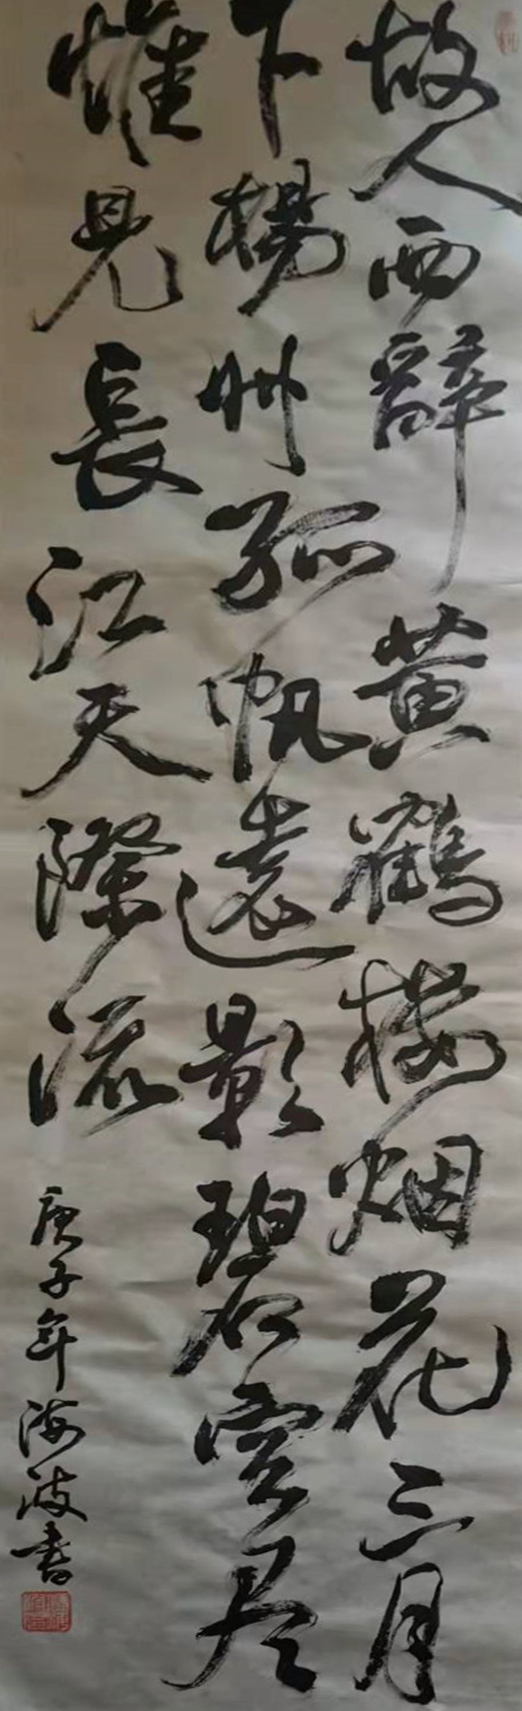 故人西辞黄鹤楼烟花三月
下揚州孤帆遠影碧空尽
惟見長江天際流
庚子年海波書